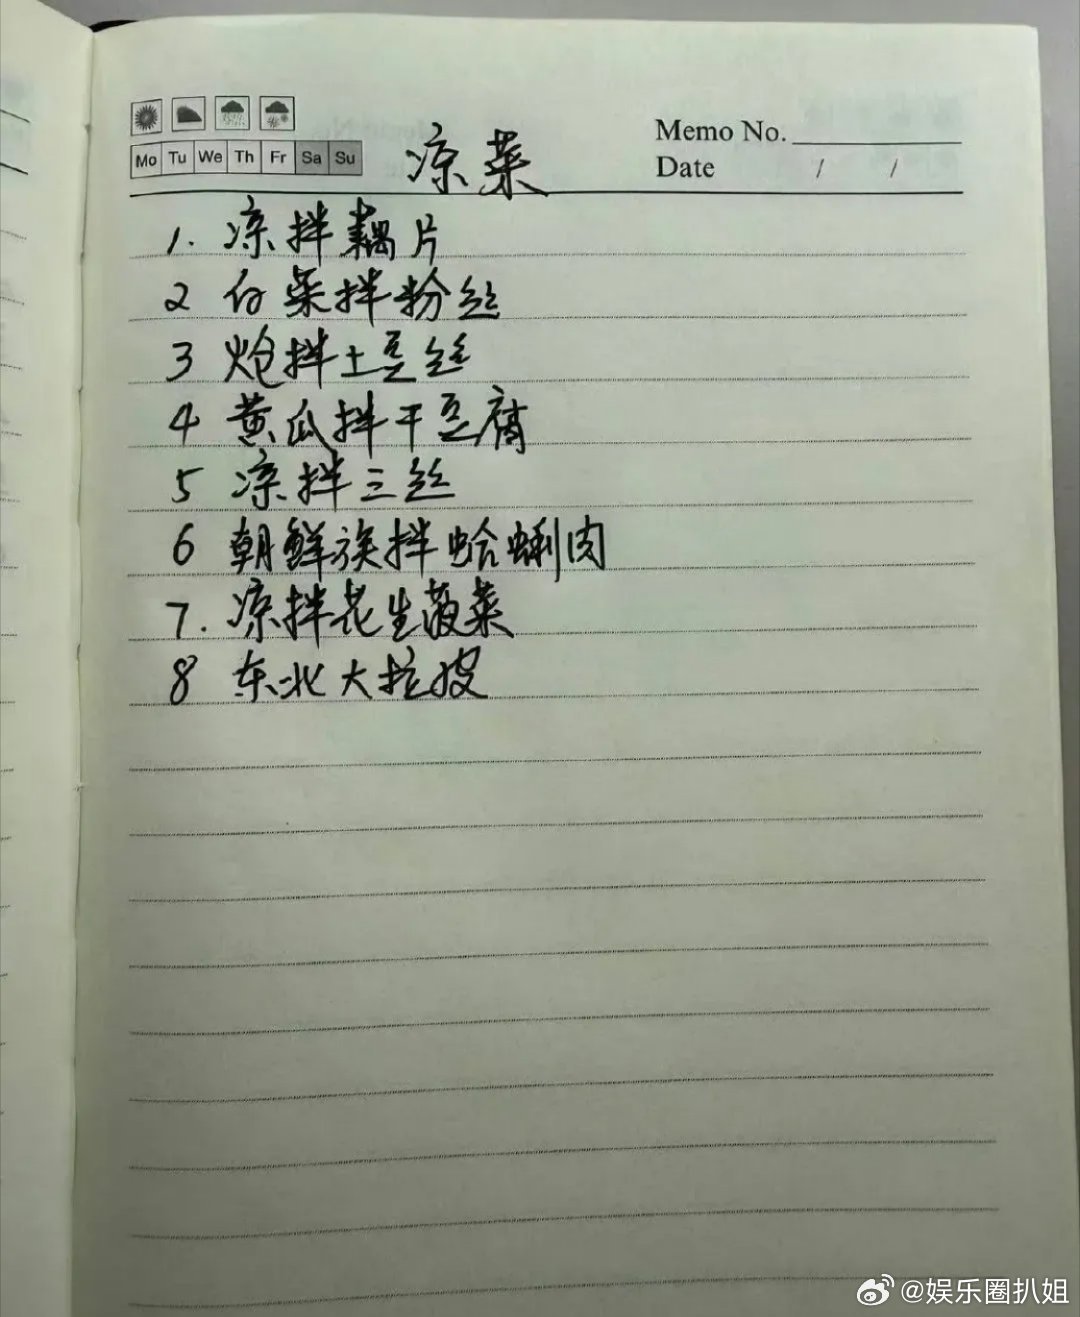 Mo Tu We Th Fr Sa Su
凉菜
Memo No.
Date / /
1. 凉拌藕片
2 白菜拌粉丝
3 炝拌土豆丝
4 黄瓜拌干豆腐
5 凉拌三丝
6 朝鲜族拌蛤蜊肉
7. 凉拌花生菠菜
8 东北大拉皮
@娱乐圈扒姐